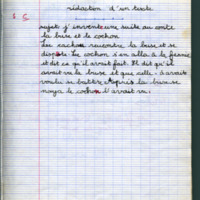 rédaction d'un texte
sujet j'invente une suite au conte
la buse et le cochon
Le cochon rencontra la buse et se
disputa. Le cochon s'en alla à la ferme
et dit ce qu'il avait fait. Il dit qu'il
avait vu la buse et que celle-ci avait
voulu se battre. Après la buse se
noya le cochon l'avait vu.